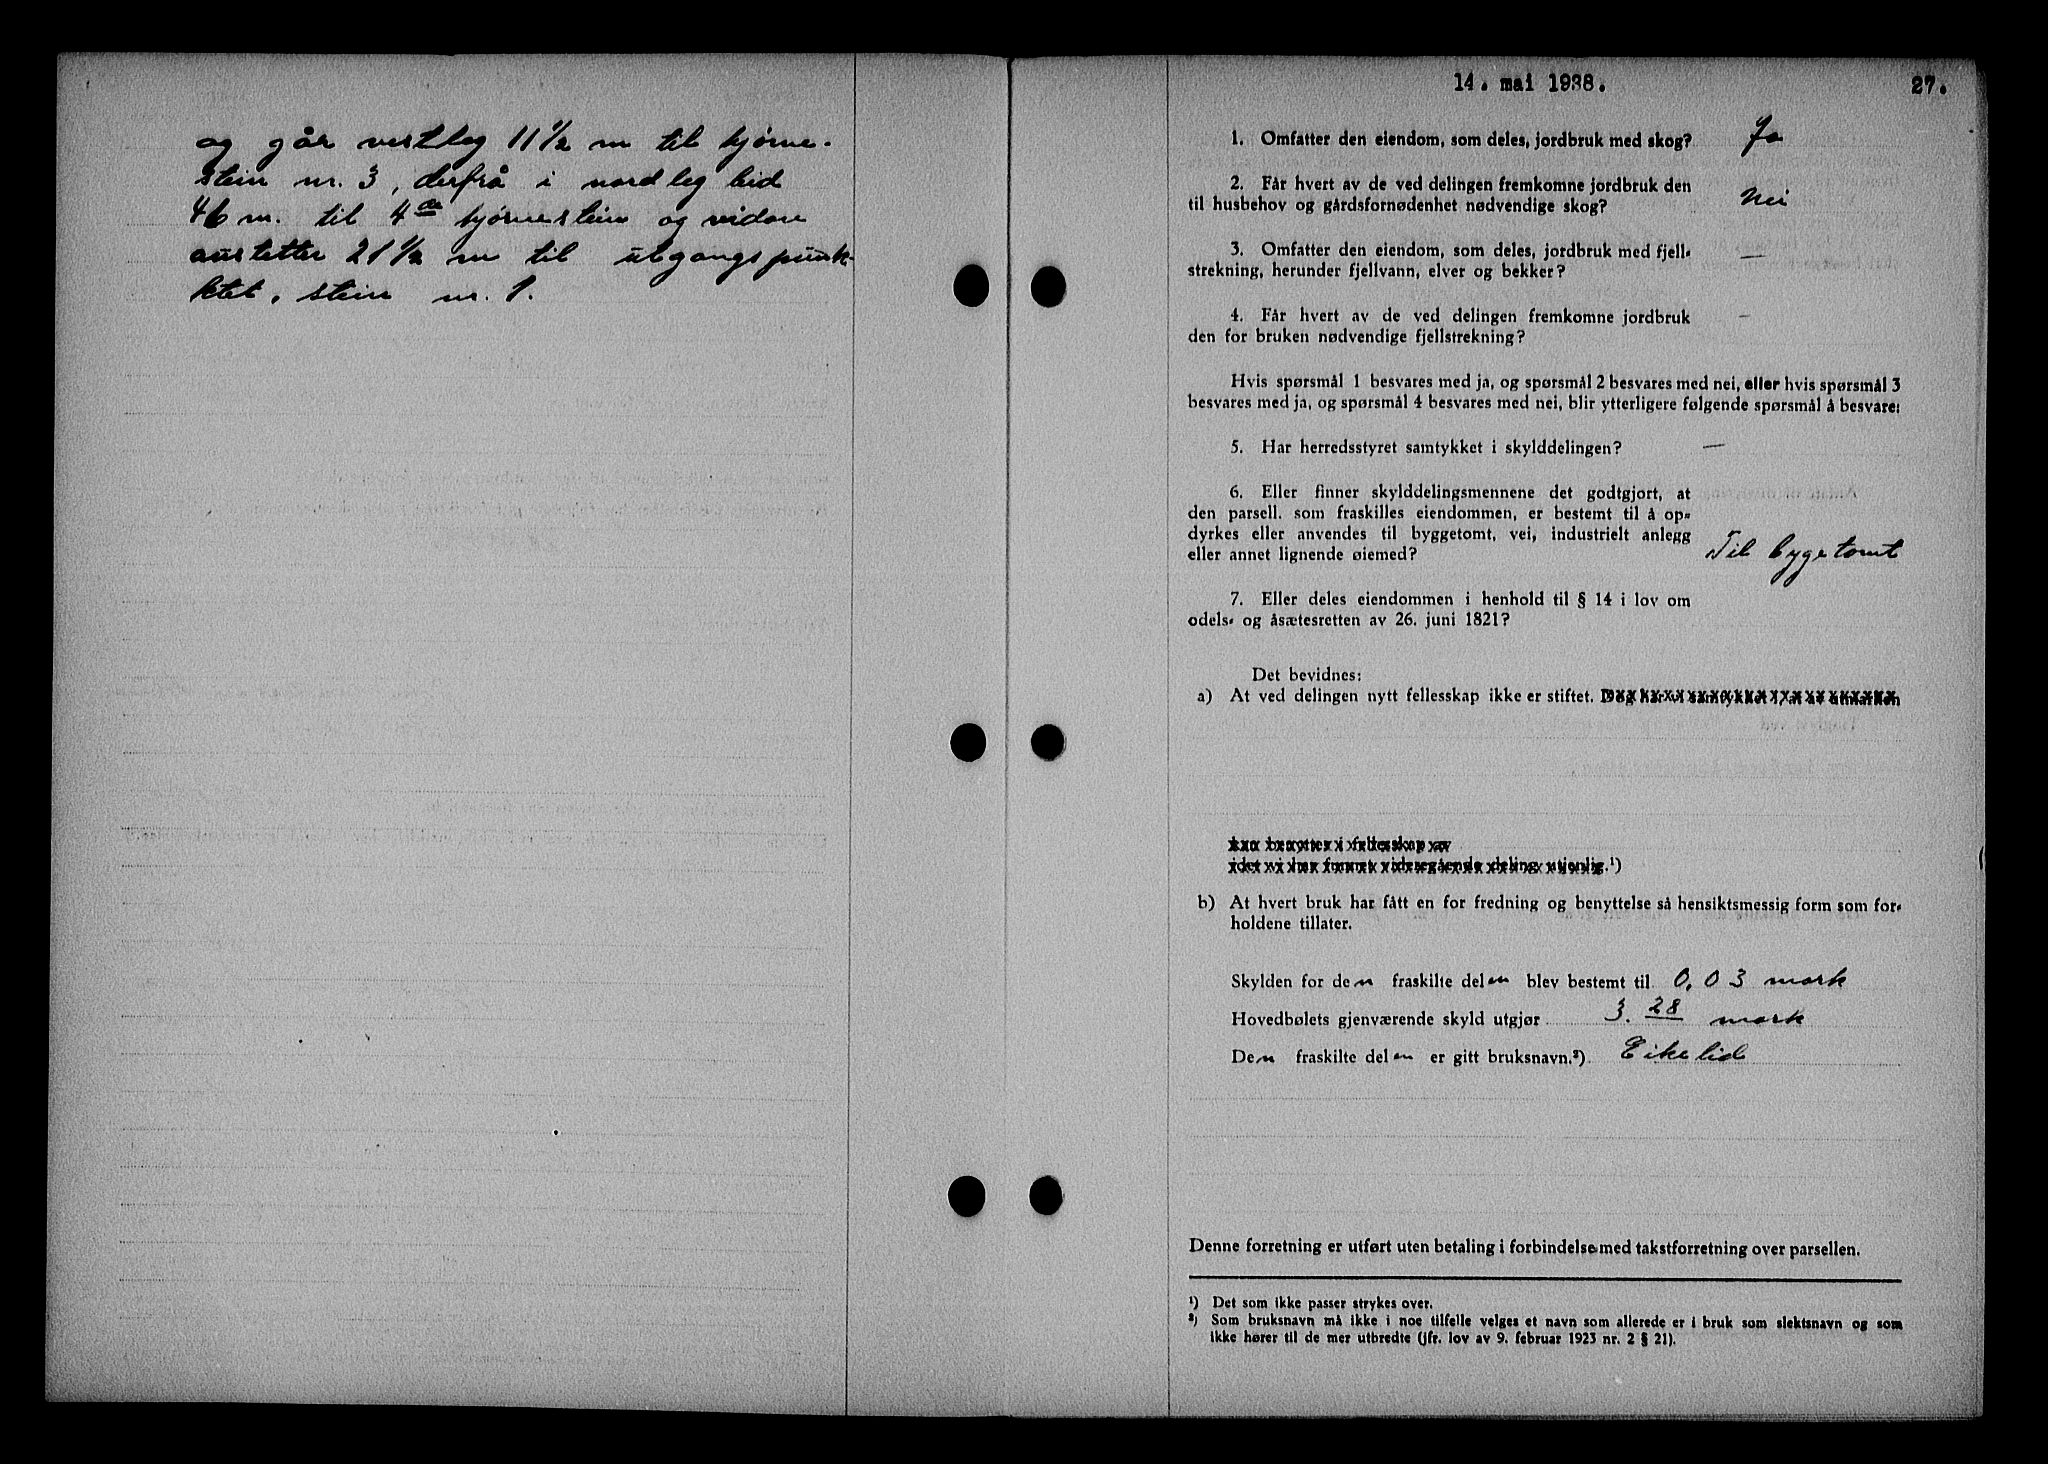 og går vestleg 11 1/2 m til hjørne-
stein nr. 3, derfrå i nordleg leid
46 m. til 4de hjørnestein og vidare
austetter 21 1/2 m til utgangspunk-
ktet, stein nr. 1.
14. mai 1938. 27.
1. Omfatter den eiendom, som deles, jordbruk med skog? Ja
2. Får hvert av de ved delingen fremkomne jordbruk den
til husbehov og gårdsfornødenhet nødvendige skog? Nei
3. Omfatter den eiendom, som deles, jordbruk med fjell-
strekning, herunder fjellvann, elver og bekker? —
4. Får hvert av de ved delingen fremkomne jordbruk —
den for bruken nødvendige fjellstrekning?
Hvis spørsmål 1 besvares med ja, og spørsmål 2 besvares med nei, eller hvis spørsmål 3
besvares med ja, og spørsmål 4 besvares med nei, blir ytterligere følgende spørsmål å besvare:
5. Har herredsstyret samtykket i skylddelingen? —
6. Eller finner skylddelingsmennene det godtgjort, at
den parsell. som fraskilles eiendommen, er bestemt til å op-
dyrkes eller anvendes til byggetomt, vei, industrielt anlegg
eller annet lignende øiemed? Til bygetomt
7. Eller deles eiendommen i henhold til § 14 i lov om
odels- og åsætesretten av 26. juni 1821?
Det bevidnes:
a) At ved delingen nytt fellesskap ikke er stiftet. Dog har vi samtykket i, at av utmarken
kan benyttes i fellesskap av
idet vi har funnet videregående deling utjenlig.¹)
b) At hvert bruk har fått en for fredning og benyttelse så hensiktsmessig form som for-
holdene tillater.
Skylden for den fraskilte delen blev bestemt til 0,03 mark
Hovedbølets gjenværende skyld utgjør 3.28 mark
Den fraskilte delen er gitt bruksnavn.²) Eikelid
Denne forretning er utført uten betaling i forbindelse med takstforretning over parsellen.
¹) Det som ikke passer strykes over.
²) Som bruksnavn må ikke i noe tilfelle velges et navn som allerede er i bruk som slektsnavn og som
ikke hører til de mer utbredte (jfr. lov av 9. februar 1923 nr. 2 § 21).